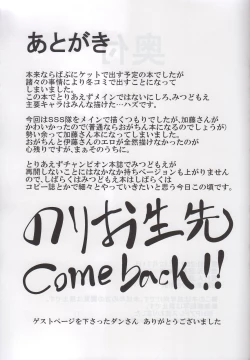 あとがき
本来ならばぷにケットで出す予定の本でしたが
諸々の事情により冬コミで出すことになって
しまいました。
この本でとりあえずメインではないにしろ、みつどもえ
主要キャラはみんな描けた…ハズです。
今回はSSS隊をメインで描くつもりでしたが、加藤さんが
かわいかったので(普通ならおがちん本になるのでしょうが)
勢い余って加藤さん本になってしまいました。
おがちんと伊藤さんのエロが全然描けなかったのが
心残りですが、まぁそのうちに。
とりあえずチャンピオン本誌でみつどもえが
再開しないことにはなかなか持ちページョンも上がりません
ので、しばらくはみつどもえ本はしばらくは
コピー誌とかで細々とやっていきたいと思う今日この頃です。
のりお先生
Come back!!
ゲストページを下さったダンさん ありがとうございました